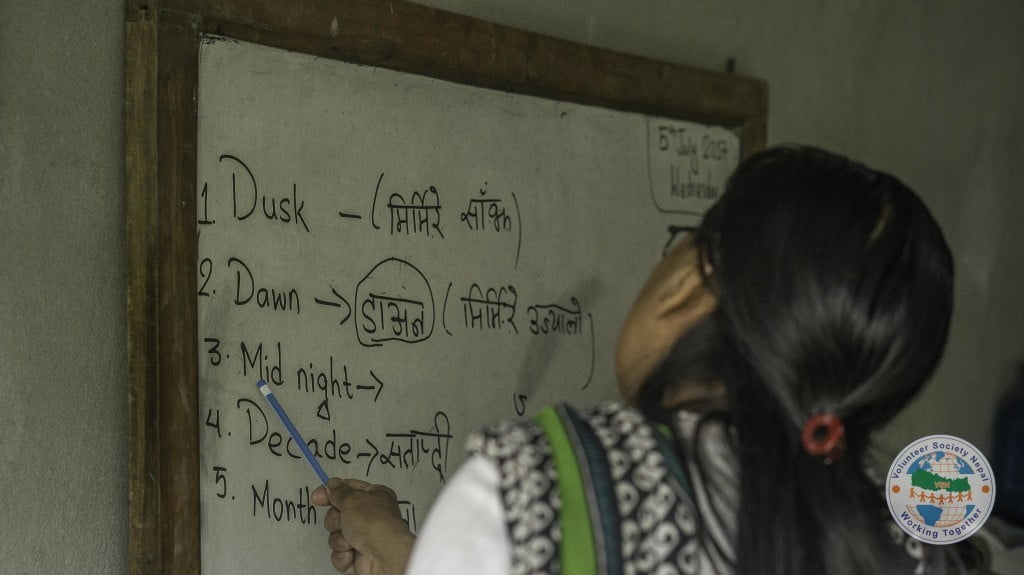 5th July 2017
Wednesday
1. Dusk – (मिर्मिरे साँझ)
2. Dawn → डाअन (मिर्मिरे उज्यालो)
3. Mid night →
4. Decade → सताब्दी
5. Month
Volunteer Society Nepal
VSN
Working Together